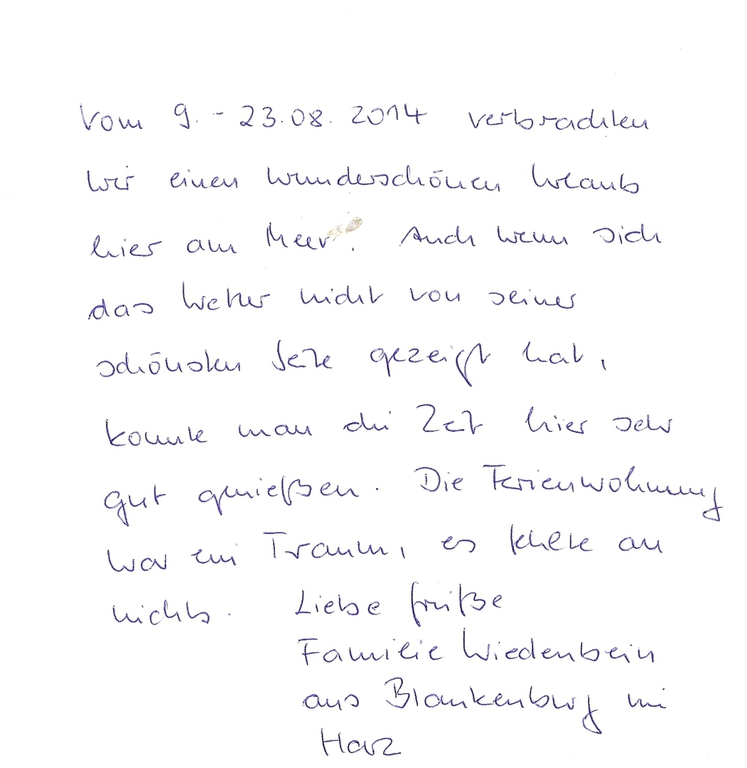 Vom 9. - 23.08. 2014 verbrachten
wir einen wunderschönen Urlaub
hier am Meer. Auch wenn sich
das Wetter nicht von seiner
schönsten Seite gezeigt hat,
konnte man die Zeit hier sehr
gut genießen. Die Ferienwohnung
war ein Traum, es fehlte an
nichts. Liebe Grüße
Familie Wiedenbein
aus Blankenburg im
Harz